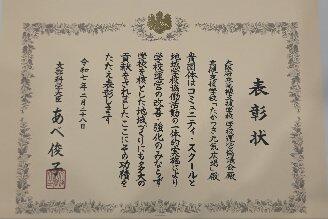 表彰状
大阪府立高槻支援学校学校運営協議会殿
高槻支援学校「たかつき元気広場」殿
貴団体はコミュニティ・スクールと
地域学校協働活動の一体的実施により
学校運営の改善・強化のみならず
学校を核とした地域づくりにも多大の
貢献をされましたここにその功績を
たたえ表彰します
令和七年二月二八日
文部科学大臣 あべ俊子